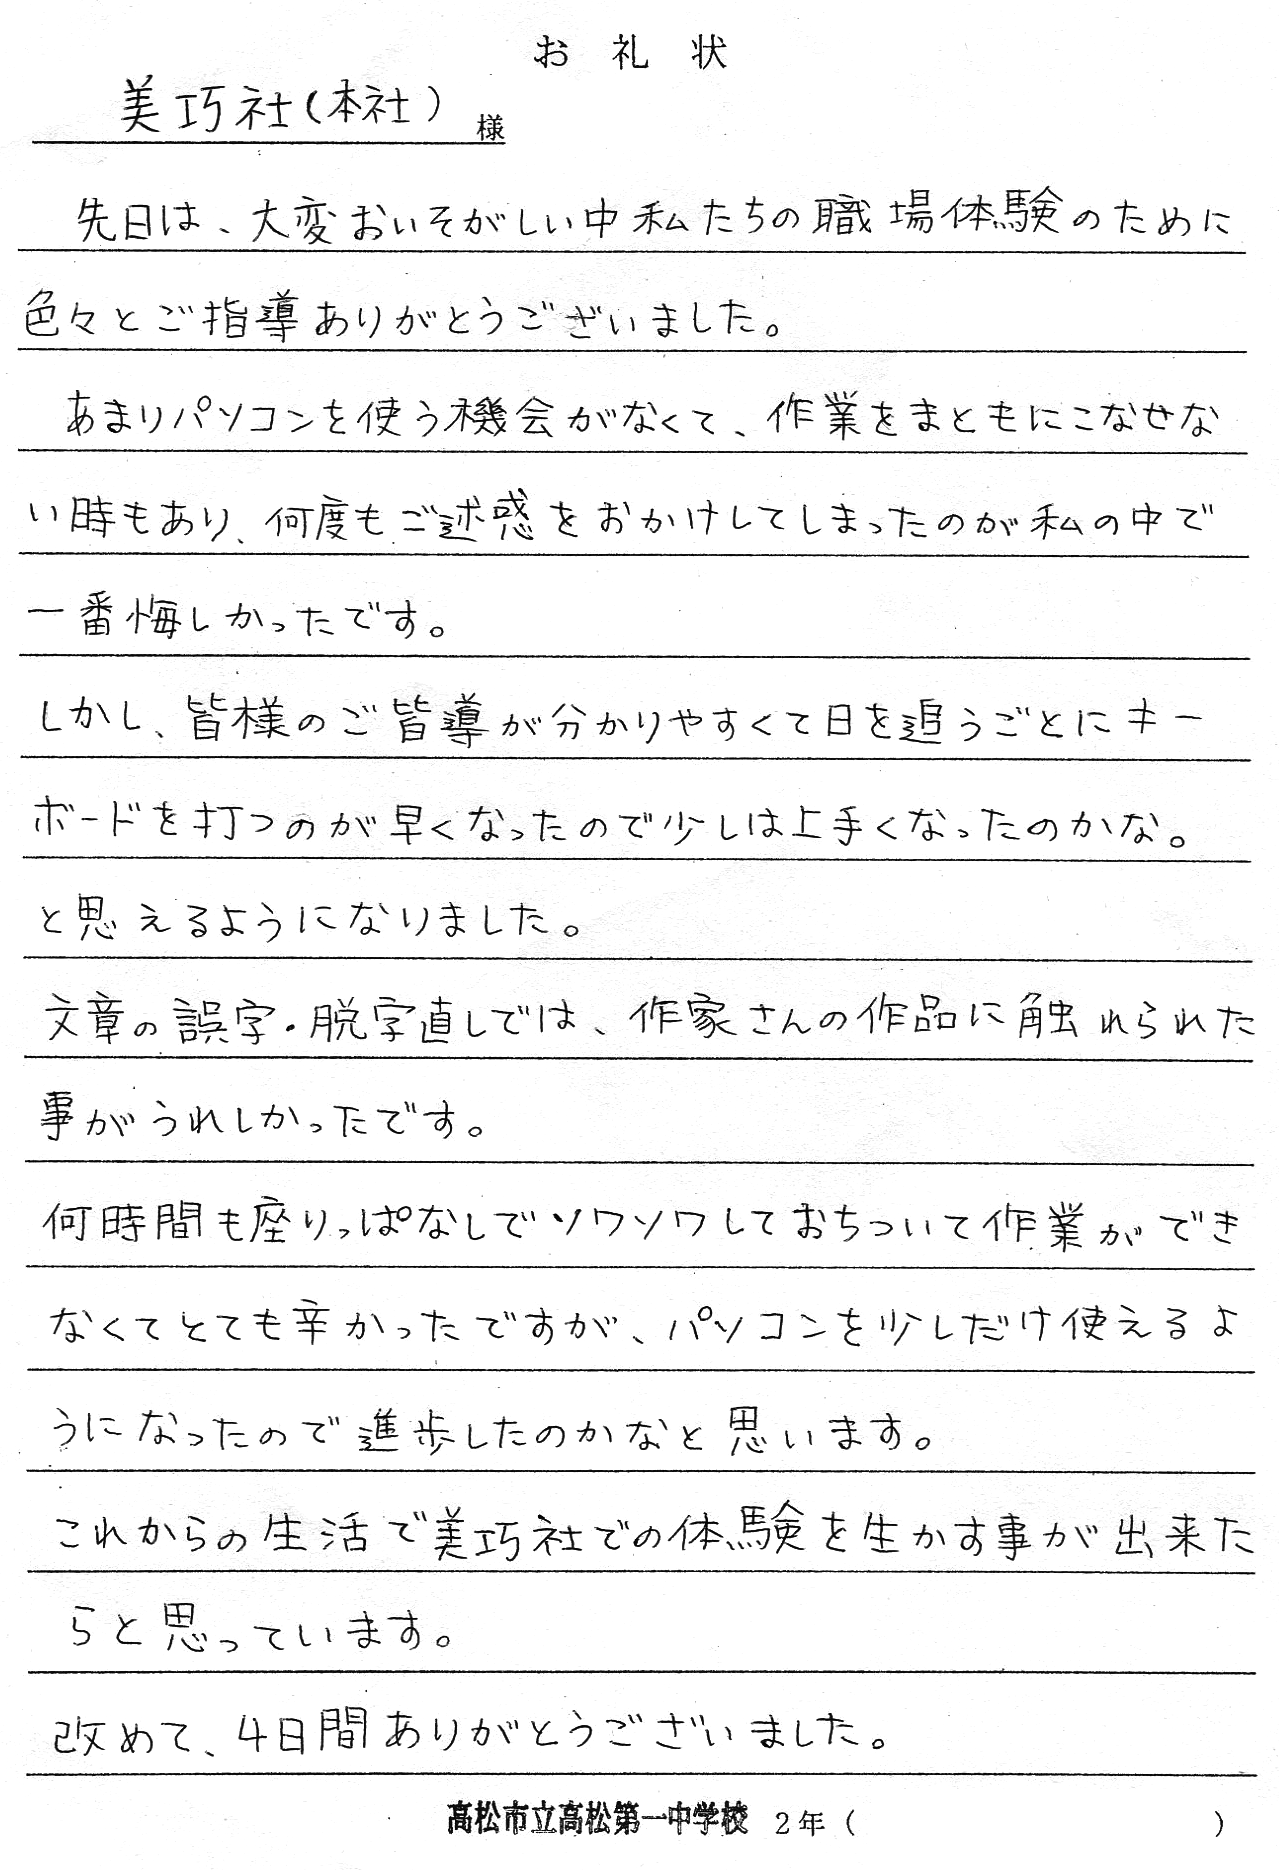 お礼状
美巧社(本社) 様
先日は、大変おいそがしい中私たちの職場体験のために
色々とご指導ありがとうございました。
あまりパソコンを使う機会がなくて、作業をまともにこなせな
い時もあり、何度もご迷惑をおかけしてしまったのが私の中で
一番悔しかったです。
しかし、皆様のご皆導が分かりやすくて日を追うごとにキー
ボードを打つのが早くなったので少しは上手くなったのかな。
と思えるようになりました。
文章の誤字・脱字直しでは、作家さんの作品に触れられた
事がうれしかったです。
何時間も座りっぱなしでソワソワしておちついて作業ができ
なくてとても辛かったですが、パソコンを少しだけ使えるよ
うになったので進歩したのかなと思います。
これからの生活で美巧社での体験を生かす事が出来た
らと思っています。
改めて、4日間ありがとうございました。
高松市立高松第一中学校 2年( )